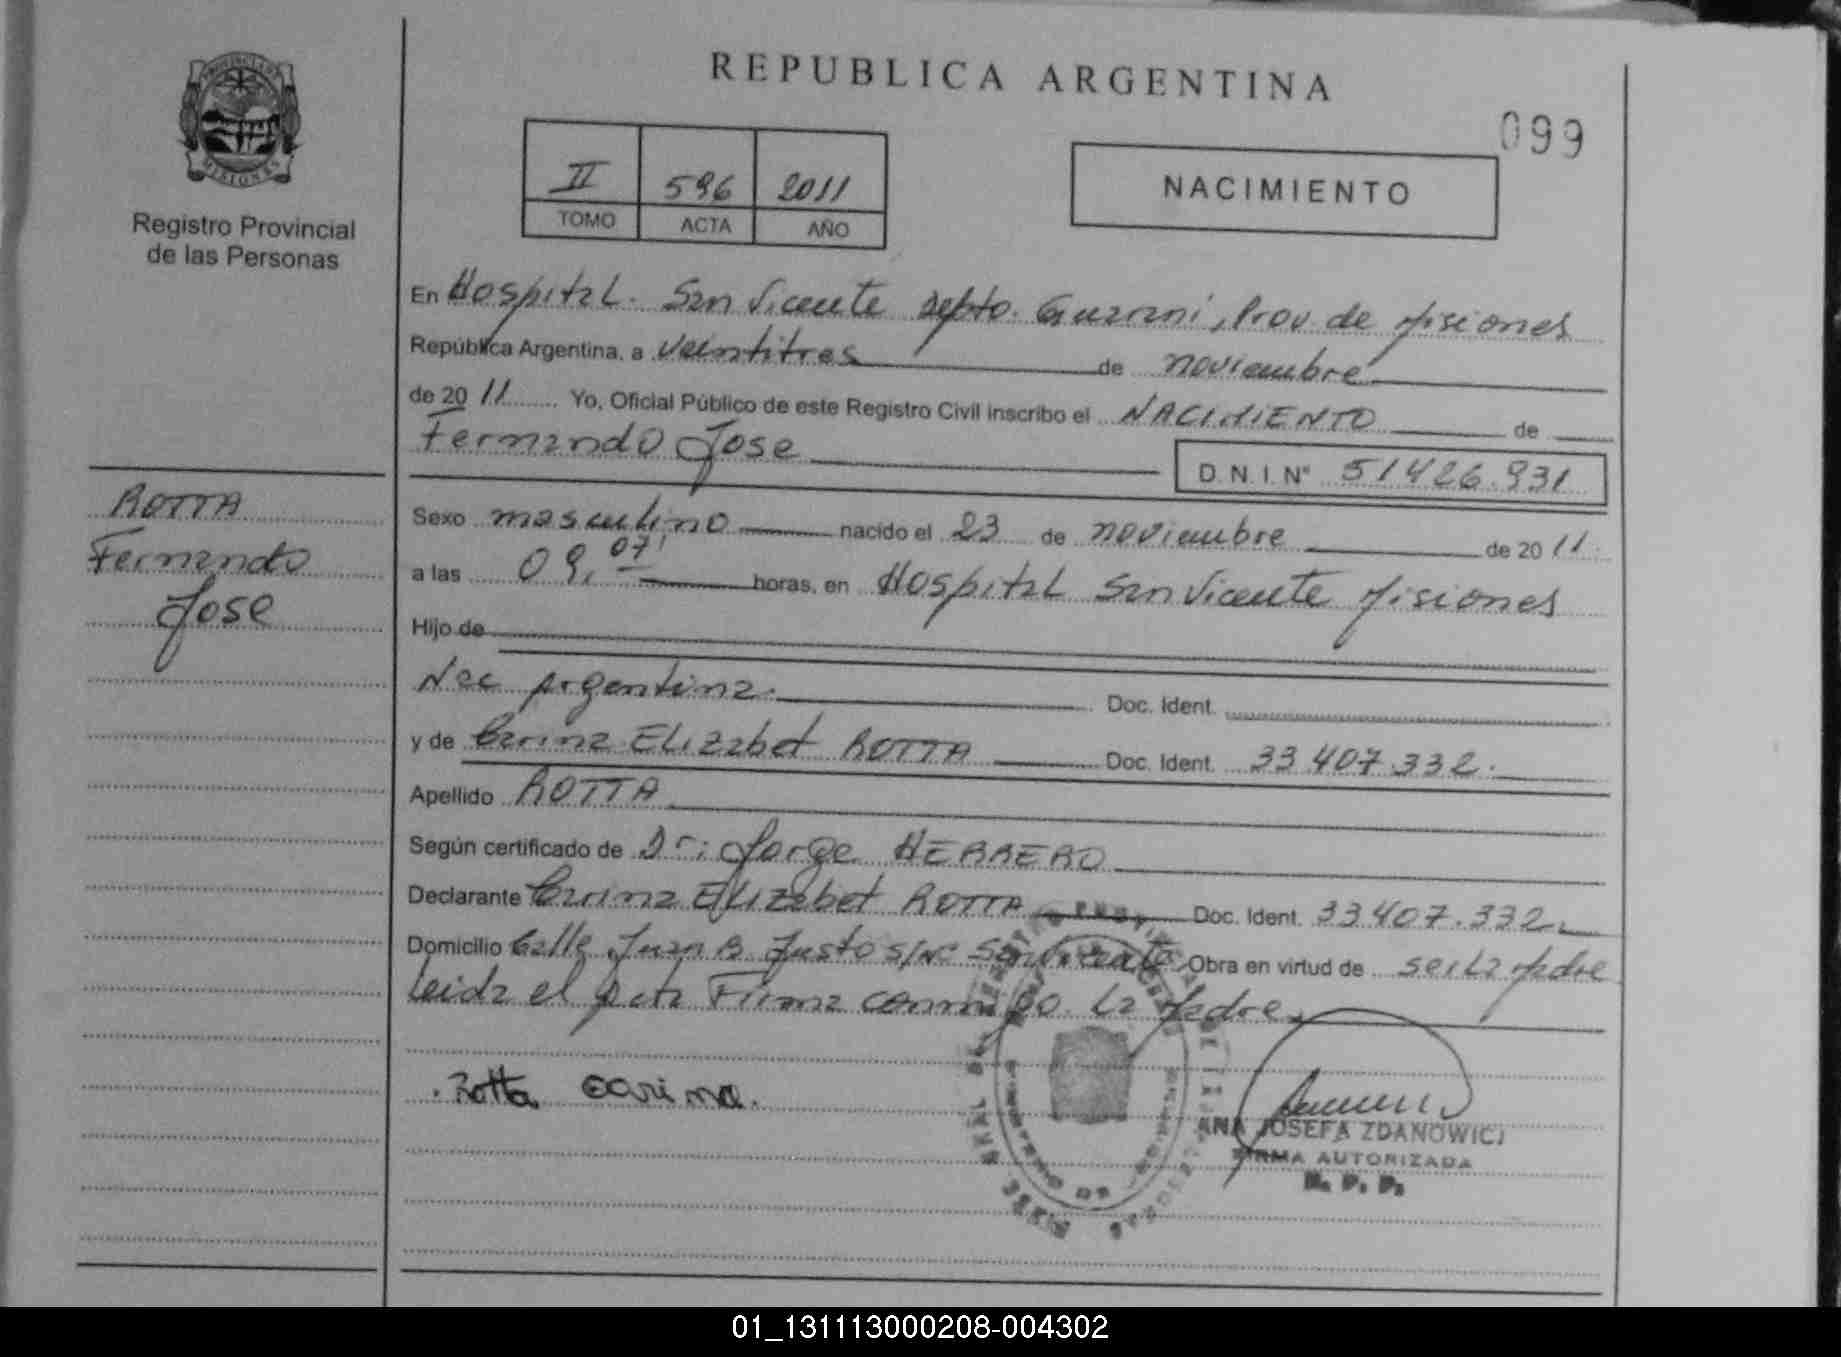 REPUBLICA ARGENTINA
099
PROVINCIA DE
MISIONES
Registro Provincial
de las Personas
II 596 2011
TOMO ACTA AÑO
NACIMIENTO
En Hospital. San Vicente Depto. Guarani, Prov. de Misiones
República Argentina, a veintitres de noviembre
de 2011 Yo, Oficial Público de este Registro Civil inscribo el NACIMIENTO de
Fernando Jose
D.N.I. Nº 51426.931
ROTTA
Fernando
Jose
Sexo masculino nacido el 23 de noviembre de 2011.
a las 09,07' horas, en Hospital San Vicente Misiones
Hijo de
Nac Argentina. Doc. Ident.
y de Carina Elizabet ROTTA Doc. Ident. 33 407.332.
Apellido ROTTA
Según certificado de Dr: Jorge HERRERO
Declarante Carina Elizabet ROTTA Doc. Ident. 33.407.332
Domicilio Calle Juan B. Justo s/Nº San Vicente Obra en virtud de ser La Madre
Leida el Acta Firma conmigo La Madre.
Rotta carina.
ANA JOSEFA ZDANOWICZ
FIRMA AUTORIZADA
R. P. P.
01_131113000208-004302